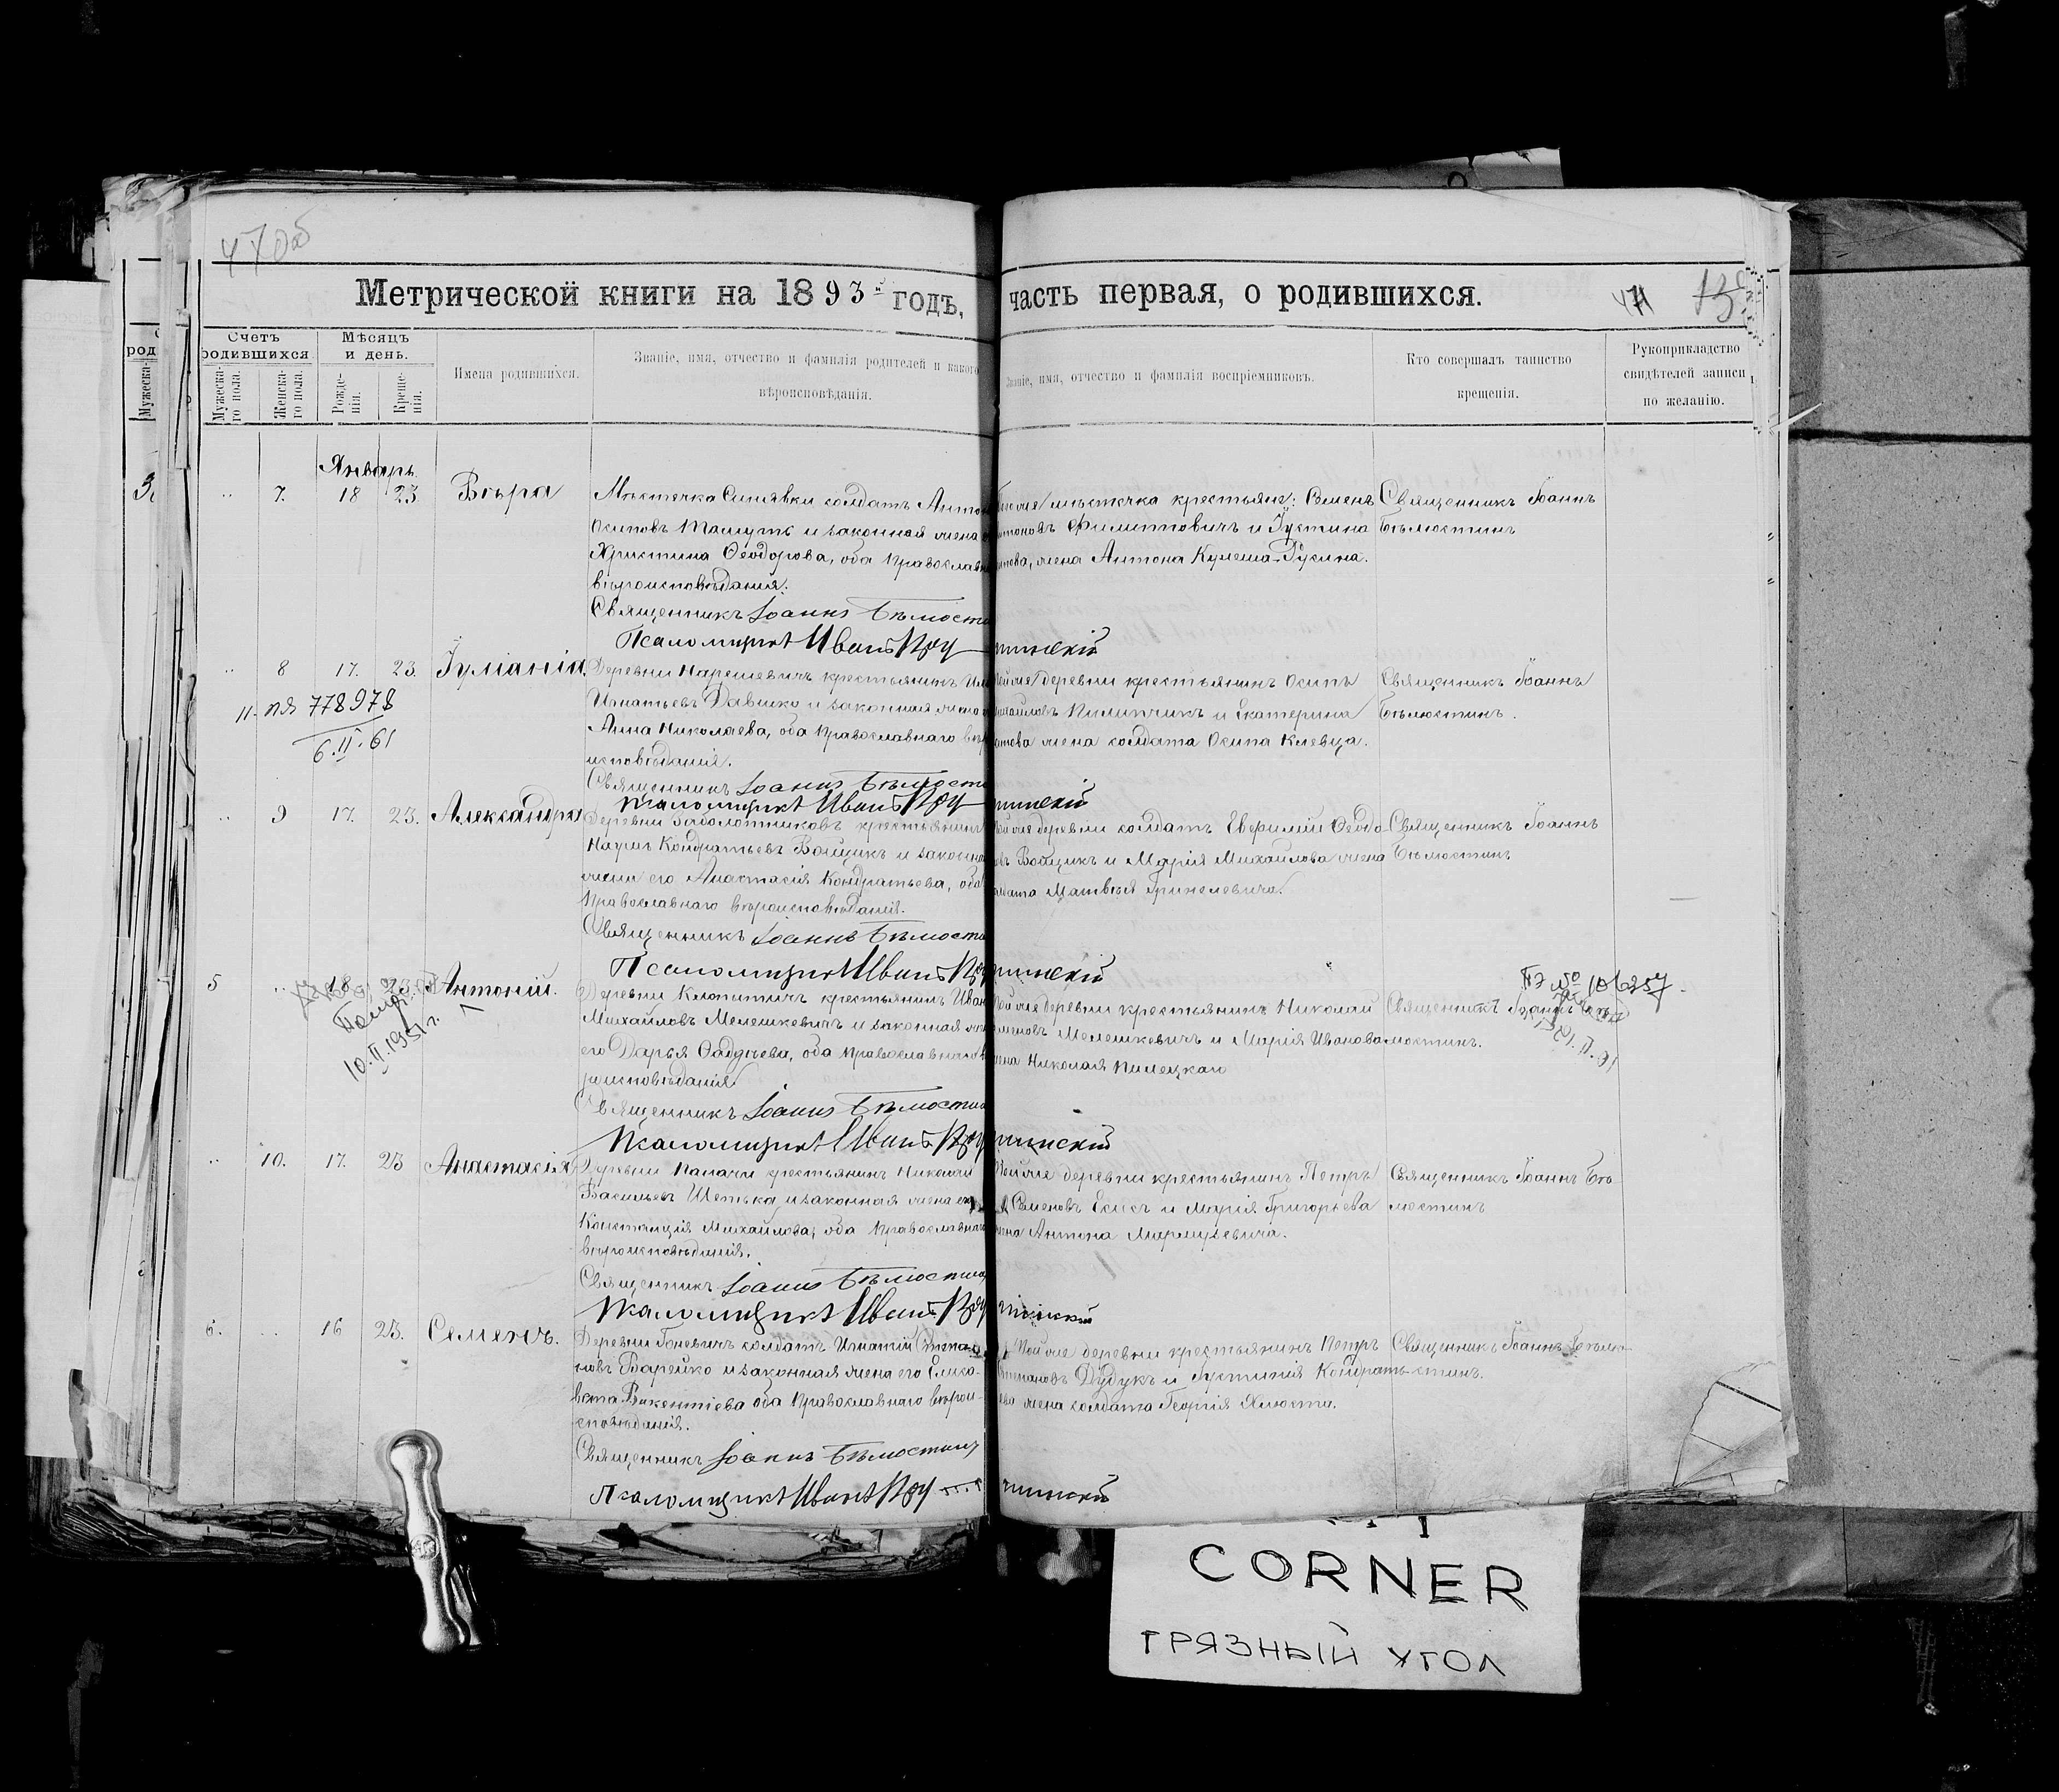 47 об
Метрической книги на 1893й годъ, часть первая, о родившихся.
Счетъ родившихся
Мѣсяцъ и день.
Мужеска-го пола.
Женска-го пола.
Рожде-нія.
Креще-нія.
Имена родившихся.
Званіе, имя, отчество и фамилія родителей и какого
вѣроисповѣданія.
Званіе, имя, отчество и фамилія воспріемниковъ.
Кто совершалъ таинство
крещенія.
Рукоприкладство
свидѣтелей записи
по желанію.
Январь
7. 18 23. Вѣра
Мѣстечка Синявки солдатъ Антон
Осиповъ Машутъ и законная жена
Христина Ѳеодорова, оба православн
вѣроисповѣданія.
Священникъ Іоаннъ Бѣлюсти
Псаломщикъ Иванъ Кру
Того же мѣстечка крестьяне: Семенъ
тоновъ Филипповичъ и Іустина
ипова, жена Антона Кулеша-Русина.
чинскій
Священникъ Іоаннъ
Бѣлюстинъ
8 17. 23. Іуліанія.
11. ПЯ 778978
6.II.61
Деревни Нарешевичъ крестьянинъ
Игнатьевъ Давшко и законная жена
Анна Николаева, оба православнаго вѣр
исповѣданія.
Священникъ Іоаннъ Бѣлюсти
Псаломщикъ Иванъ Кру
Той же деревни крестьянинъ Осипъ
хайловъ Пилипчикъ и Екатерина
жена солдата Осипа Клевца.
чинскій
Священникъ Іоаннъ
Бѣлюстинъ.
9 17. 23. Александра
Деревни Заболотниковъ крестьянинъ
Наумъ Кондратьевъ Войщикъ и законна
жена его Анастасія Кондратьева, оба
православнаго вѣроисповѣданія.
Священникъ Іоаннъ Бѣлюсти
Псаломщикъ Иванъ Кру
Той же деревни солдатъ Евфимій Ѳеодо
овъ Войщикъ и Марія Михайлова жена
лдата Матвѣя Гринелевича.
чинскій
Священникъ Іоаннъ
Бѣлюстинъ
5 18 23. Антоній.
10.II.1951 г.
Деревни Клопитичъ крестьянинъ Иван
Михайловъ Мелешкевичъ и законная же
его Дарья Ѳаддеева, оба православнаго в
роисповѣданія.
Священникъ Іоаннъ Бѣлюстин
Псаломщикъ Иванъ Кру
Той же деревни крестьянинъ Николай
меновъ Мелешкевичъ и Марія Иванова
жена Николая Пилецкаго
чинскій
Священникъ Іоаннъ Бѣ
люстинъ.
ПЭ № 106257.
10. 17. 23 Анастасія
Деревни Палачи крестьянинъ Николай
Васильевъ Шетька и законная жена его
Констанція Михайлова, оба православнаго
вѣроисповѣданія.
Священникъ Іоаннъ Бѣлюстинъ
Псаломщикъ Иванъ Кру
Той же деревни крестьянинъ Петръ
Семеновъ Есисъ и Марія Григорьева
жена Антона Мармузевича.
чинскій
Священникъ Іоаннъ Бѣ
люстинъ
6. 16 23. Семенъ.
Деревни Гоневичъ солдатъ Игнатій Степа-
новъ Варейко и законная жена его Елиса-
вета Викентіева оба православнаго вѣрои-
сповѣданія.
Священникъ Іоаннъ Бѣлюстинъ
Псаломщикъ Иванъ Кру
Той же деревни крестьянинъ Петръ
Степановъ Дудукъ и Іустинія Кондрать-
ева жена солдата Георгія Хлюста.
чинскій
Священникъ Іоаннъ Бѣлю-
стинъ.
CORNER
ГРЯЗНЫЙ УГОЛ